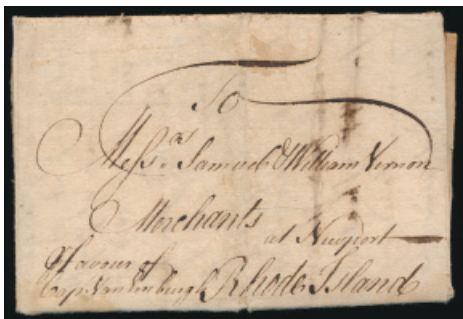 To
Mess.rs Samuel & William Vernon
Merchants
at Newport
Favour of
Rhode Island